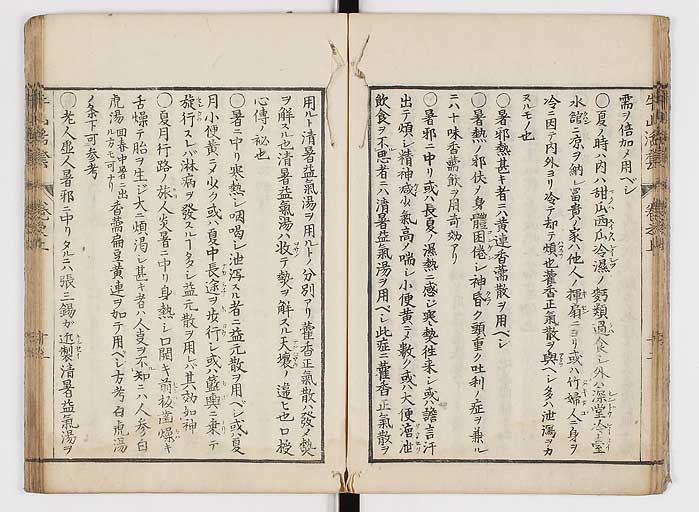 需ヲ倍加メ用ベシ
○夏ノ時ハ内ハ甜瓜西瓜冷濕ノ麪類過食シ外ハ深堂冷室
水舘ニ凉ヲ納レ富貴ノ家ハ他人ノ揮扇ニヨリ或ハ竹婦人ニ身ヲ
冷ニ因テ内外ヨリ冷テ却テ煩也藿香正氣散ヲ與ベシ多ハ泄瀉ヲカ
スルモノ也
○暑邪熱甚キ者ニハ黄連香薷散ヲ用ベシ
○暑熱ノ邪伏メ身體困倦シ神昏ク頭重ク吐利ノ症ヲ兼ル
ニハ十味香薷飲ヲ用奇効アリ
○暑邪ニ中リ或ハ長夏ノ濕熱ニ感シ寒熱徃来シ或ハ譫言汗
出テ煩シ精神減少氣高ノ喘シ小便黄テ數ク或ハ大便溏泄
飲食ヲ不思者ニハ清暑益氣湯ヲ用ベシ此症ニ藿香正氣散ヲ
用ルト清暑益氣湯ヲ用ルトノ分別アリ藿香正氣散ハ發メ熱
ヲ解スル也清暑益氣湯ハ收テ熱ヲ解スル天壤ノ違ヒ也口授
心傳ノ秘也
○暑ニ中リ寒熱シ咽喝シ泄瀉スル者ニ益元散ヲ用ベシ或ハ夏
月小便黄ク少ク或ハ夏中長途ヲ歩行シ或ハ籃輿ニ乗テ
旅行スレバ淋病ヲ發スルヿ多シ益元散ヲ用レバ其効如神
○夏月行路ノ旅人炎暑ニ中リ身熱シ口開キ前板齒燥キ
舌燥テ胎ヲ生ジ大ニ煩渇シ甚キ者ハ人事ヲ不知ニハ人参白
虎湯回春中暑ニ出ル方モ可ナリ香薷扁豆黄連ヲ加テ用ベシ方考白虎湯
ノ条下可参考
○老人虚人暑邪ニ中リタルニハ張三錫ガ近製清暑益氣湯ヲ